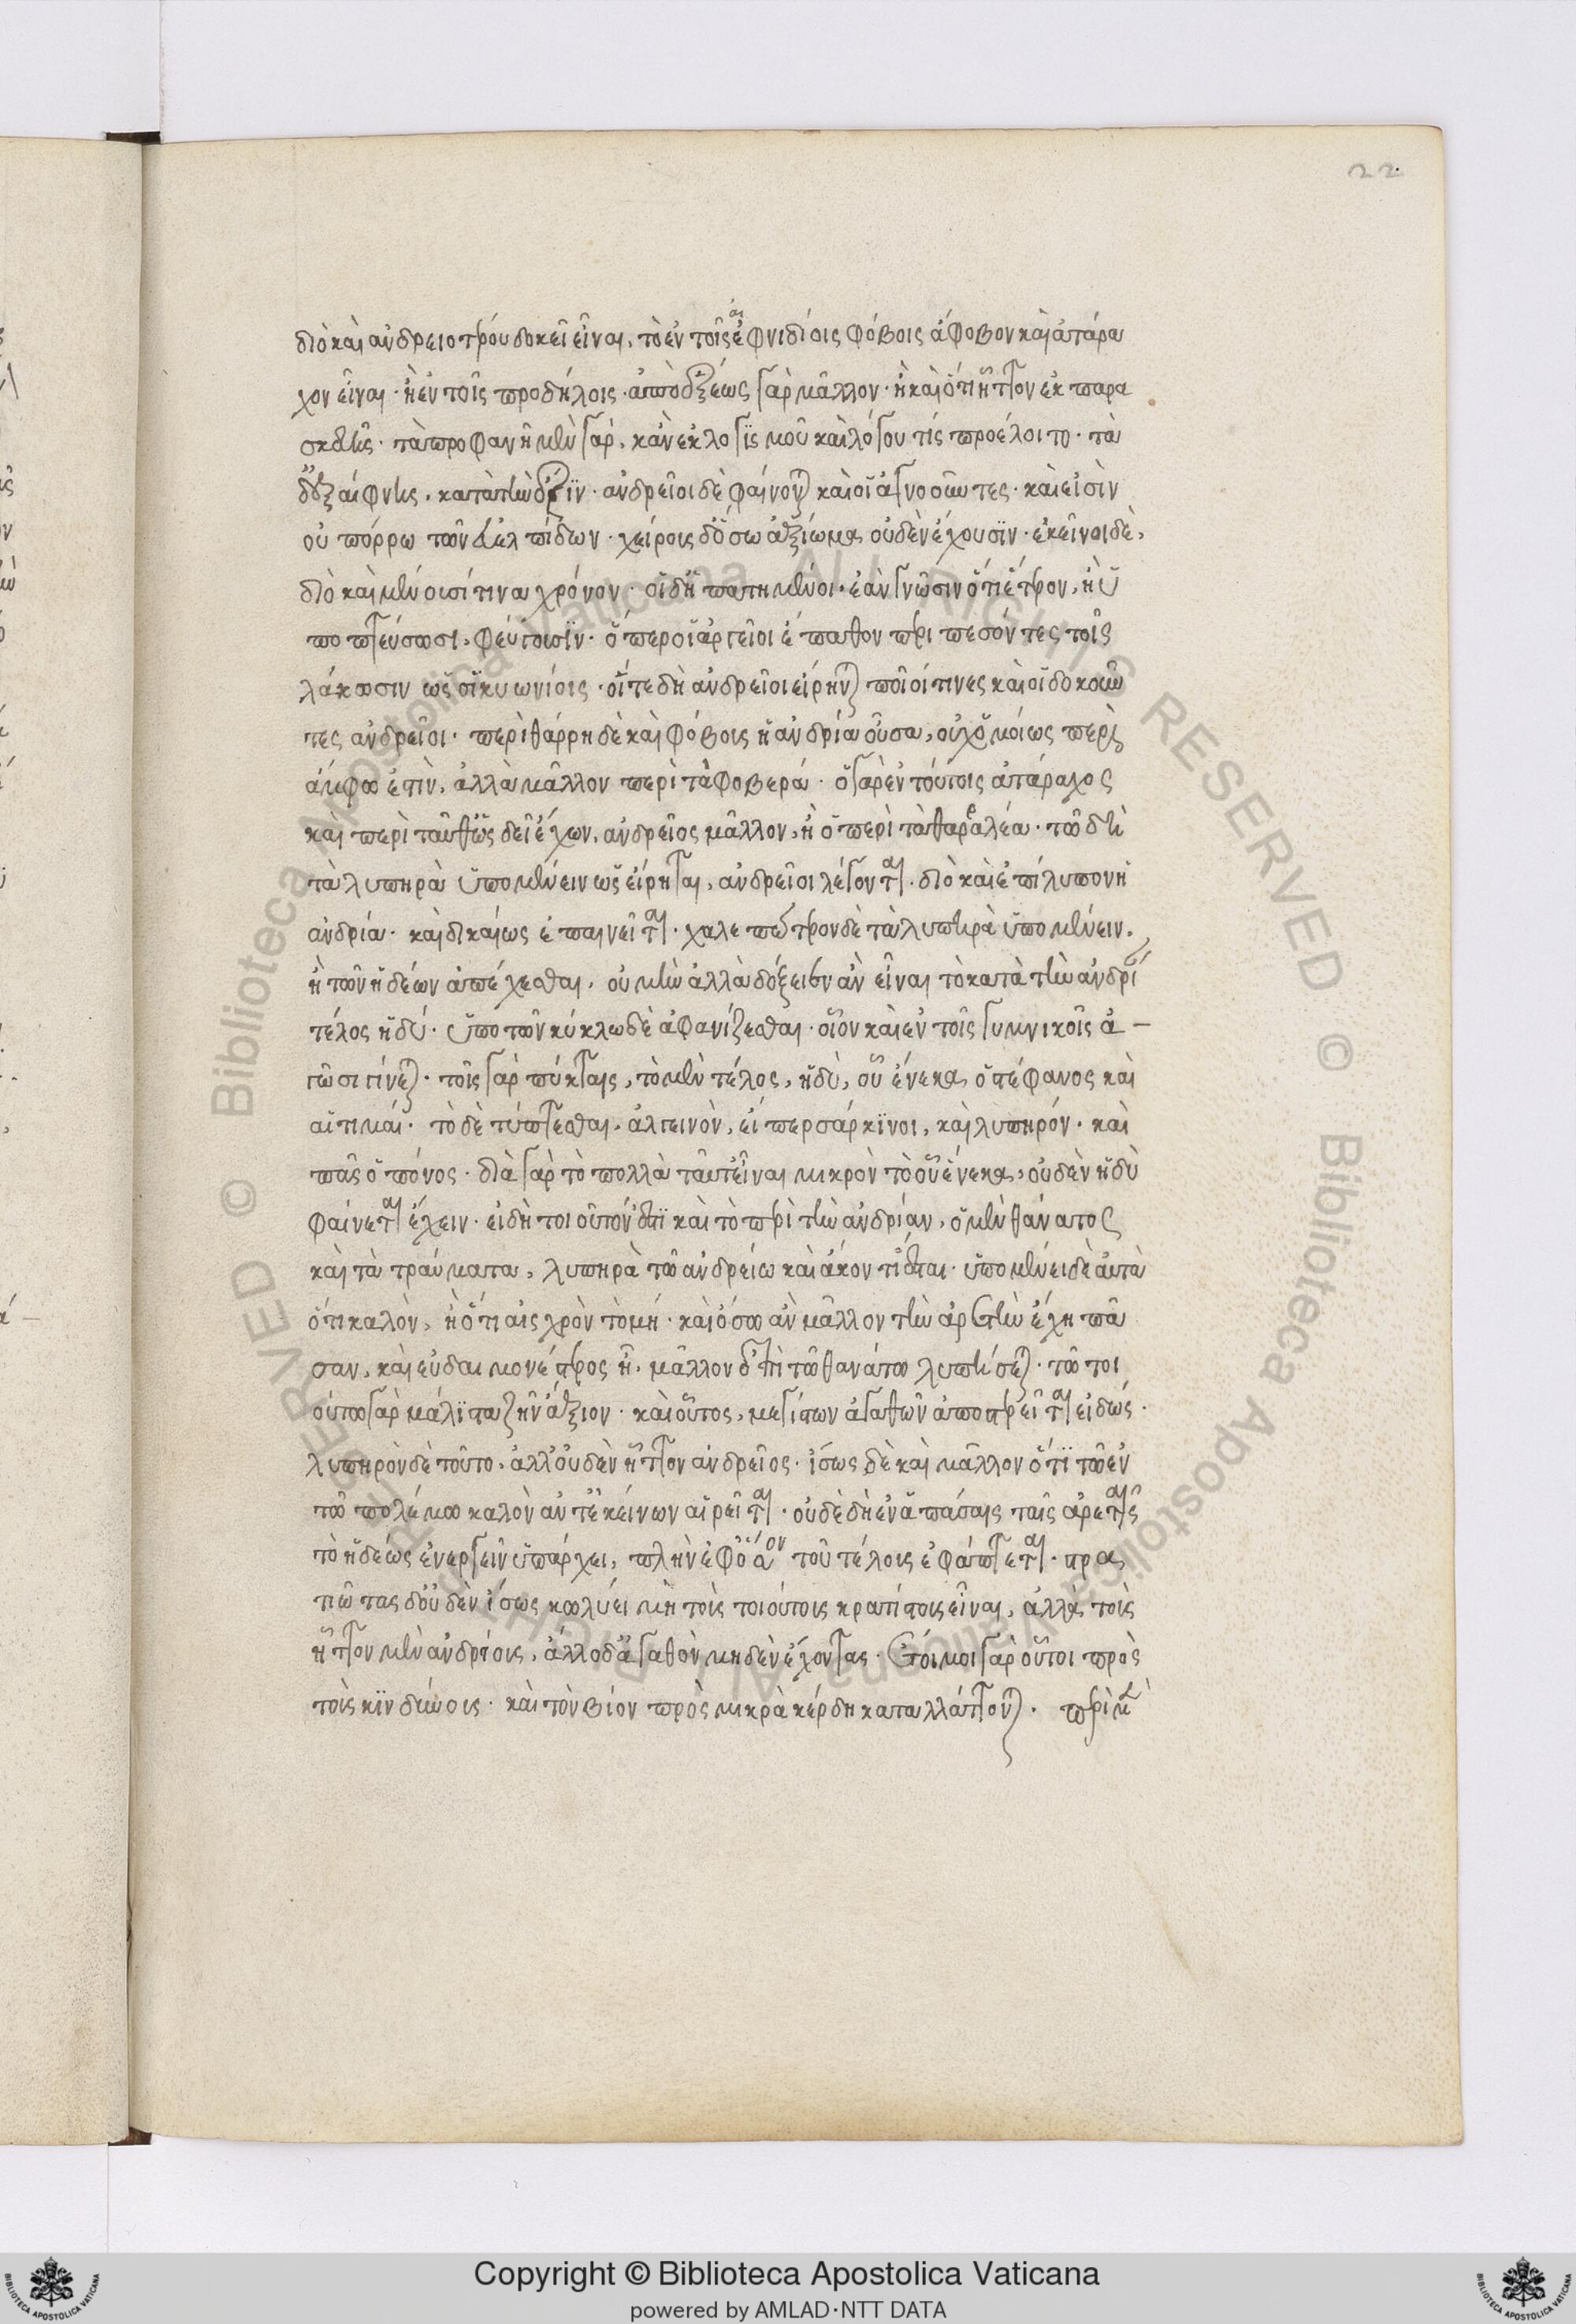 22.
διὸ καὶ ἀνδρειοτέρου δοκεῖ εἶναι, τὸ ἐν τοῖς αἐφνιδίοις φόβοις ἄφοβον καὶ ἀτάρα
χον εἶναι · ἢ ἐν τοῖς προδήλοις · ἀπὸ ἕξεως γὰρ μᾶλλον · ἢ καὶ ὅτι ἧττον ἐκ παρα
σκευῆς · τὰ προφανῆ μὲν γὰρ, κἂν ἐκ λογισμοῦ καὶ λόγου τίς προέλοιτο · τὰ
δ' ἐξαίφνης, κατὰ τὴν ἕξιν · ἀνδρεῖοι δὲ φαίνονται καὶ οἱ ἀγνοοῦντες · καὶ εἰσὶν
οὐ πόρρω τῶν εὐελπίδων · χείροις δ' ὅσω ἀξίωμα οὐδὲν ἔχουσιν · ἐκεῖνοι δὲ,
διὸ καὶ μένουσί τινα χρόνον · οἱ δ' ἠπατημένοι · ἐὰν γνῶσιν ὅτι ἕτερον, ἢ ὑ
ποπτεύσωσι, φεύγουσιν · ὅπερ οἱ ἀργεῖοι ἔπαθον περιπεσόντες τοῖς
λάκωσιν ὡς σικυωνίοις · οἵ τε δὴ ἀνδρεῖοι εἴρηνται ποῖοί τινες καὶ οἱ δοκοῦν
τες ἀνδρεῖοι · περὶ θάρρη δὲ καὶ φόβους ἡ ἀνδρία οὖσα, οὐχ ὁμοίως περὶ
ἄμφω ἐστὶν, ἀλλὰ μᾶλλον περὶ τὰ φοβερά · ὁ γὰρ ἐν τούτοις ἀτάραχος
καὶ περὶ ταῦθ' ὡς δεῖ ἔχων, ἀνδρεῖος μᾶλλον, ἢ ὁ περὶ τὰ θαρραλέα · τῶ δὴ
τὰ λυπηρὰ ὑπομένειν ὡς εἴρηται, ἀνδρεῖοι λέγονται · διὸ καὶ ἐπίλυπον ἡ
ἀνδρία · καὶ δικαίως ἐπαινεῖται · χαλεπώτερον δὲ τὰ λυπηρὰ ὑπομένειν.
ἢ τῶν ἡδέων ἀπέχεσθαι, οὐ μὴν ἀλλὰ δόξειεν ἂν εἶναι τὸ κατὰ τὴν ἀνδρίαν
τέλος ἡδύ · ὑπὸ τῶν κύκλω δὲ ἀφανίζεσθαι · οἷον καὶ ἐν τοῖς γυμνικοῖς ἀ –
γῶσι γίνεται · τοῖς γὰρ πύκταις, τὸ μὲν τέλος, ἡδὺ, οὗ ἕνεκα, ὁ στέφανος καὶ
αἱ τιμαί · τὸ δὲ τύπτεσθαι, ἀλγεινὸν, εἴπερ σάρκινοι, καὶ λυπηρόν · καὶ
πᾶς ὁ πόνος · διὰ γὰρ τὸ πολλὰ ταῦτ' εἶναι μικρὸν τὸ οὗ ἕνεκα, οὐδὲν ἡδὺ
φαίνεται ἔχειν · εἰ δὴ τοιοῦτόν ἐστι καὶ τὸ περὶ τὴν ἀνδρίαν, ὁ μὲν θάνατος
καὶ τὰ τραύματα, λυπηρὰ τῶ ἀνδρείω καὶ ἄκοντι ἔσται · ὑπομένει δὲ αὐτὰ
ὅτι καλὸν, ἢ ὅτι αἰσχρὸν τὸ μή · καὶ ὅσω ἂν μᾶλλον τὴν ἀρετὴν ἔχη πᾶ
σαν, καὶ εὐδαιμονέστερος ἦ, μᾶλλον ἐπὶ τῶ θανάτω λυπήσεται · τῶ τοι
ούτω γὰρ μάλιστα ζῆν ἄξιον · καὶ οὗτος, μεγίστων ἀγαθῶν ἀποστερεῖται εἰδώς ·
λυπηρὸν δὲ τοῦτο, ἀλλ' οὐδὲν ἧττον ἀνδρεῖος · ἴσως δὲ καὶ μᾶλλον ὅτι τὸ ἐν
τῶ πολέμω καλὸν ἀντ' ἐκείνων αἱρεῖται · οὐδὲ δὴ ἐν ἁπάσαις ταῖς ἀρεταῖς
τὸ ἡδέως ἐνεργεῖν ὑπάρχει, πλὴν ἐφ' ὅσον τοῦ τέλους ἐφάπτεται · στρα
τιώτας δ' οὐδὲν ἴσως κωλύει μὴ τοὺς τοιούτους κρατίστους εἶναι, ἀλλὰ τοὺς
ἧττον μὲν ἀνδρείους, ἄλλο δ' ἀγαθὸν μηδὲν ἔχοντας · ἕτοιμοι γὰρ οὗτοι πρὸς
τοὺς κινδύνους · καὶ τὸν βίον πρὸς μικρὰ κέρδη καταλλάττονται · περὶ μὲν
Copyright © Biblioteca Apostolica Vaticana
powered by AMLAD·NTT DATA